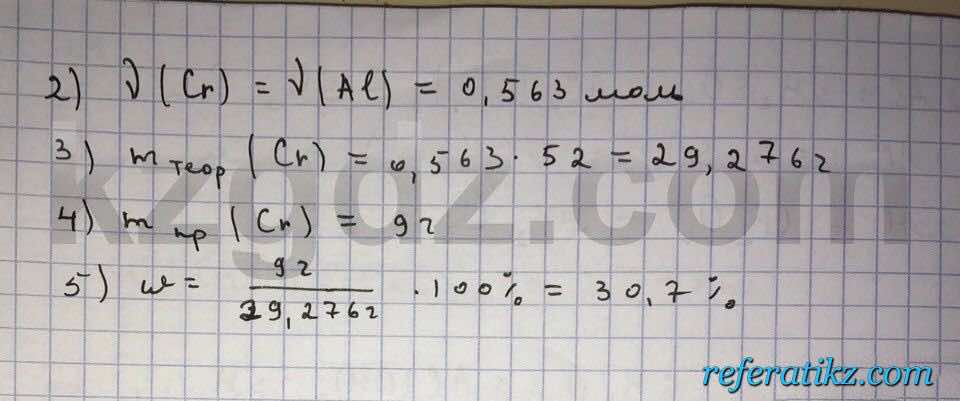 2) ν (Cr) = ν (Al) = 0,563 моль
3) m теор (Cr) = 0,563 · 52 = 29,276г
4) m пр (Cr) = 9г
5) w = 9г / 29,276г · 100% = 30,7%
kzgdz.com
referatikz.com